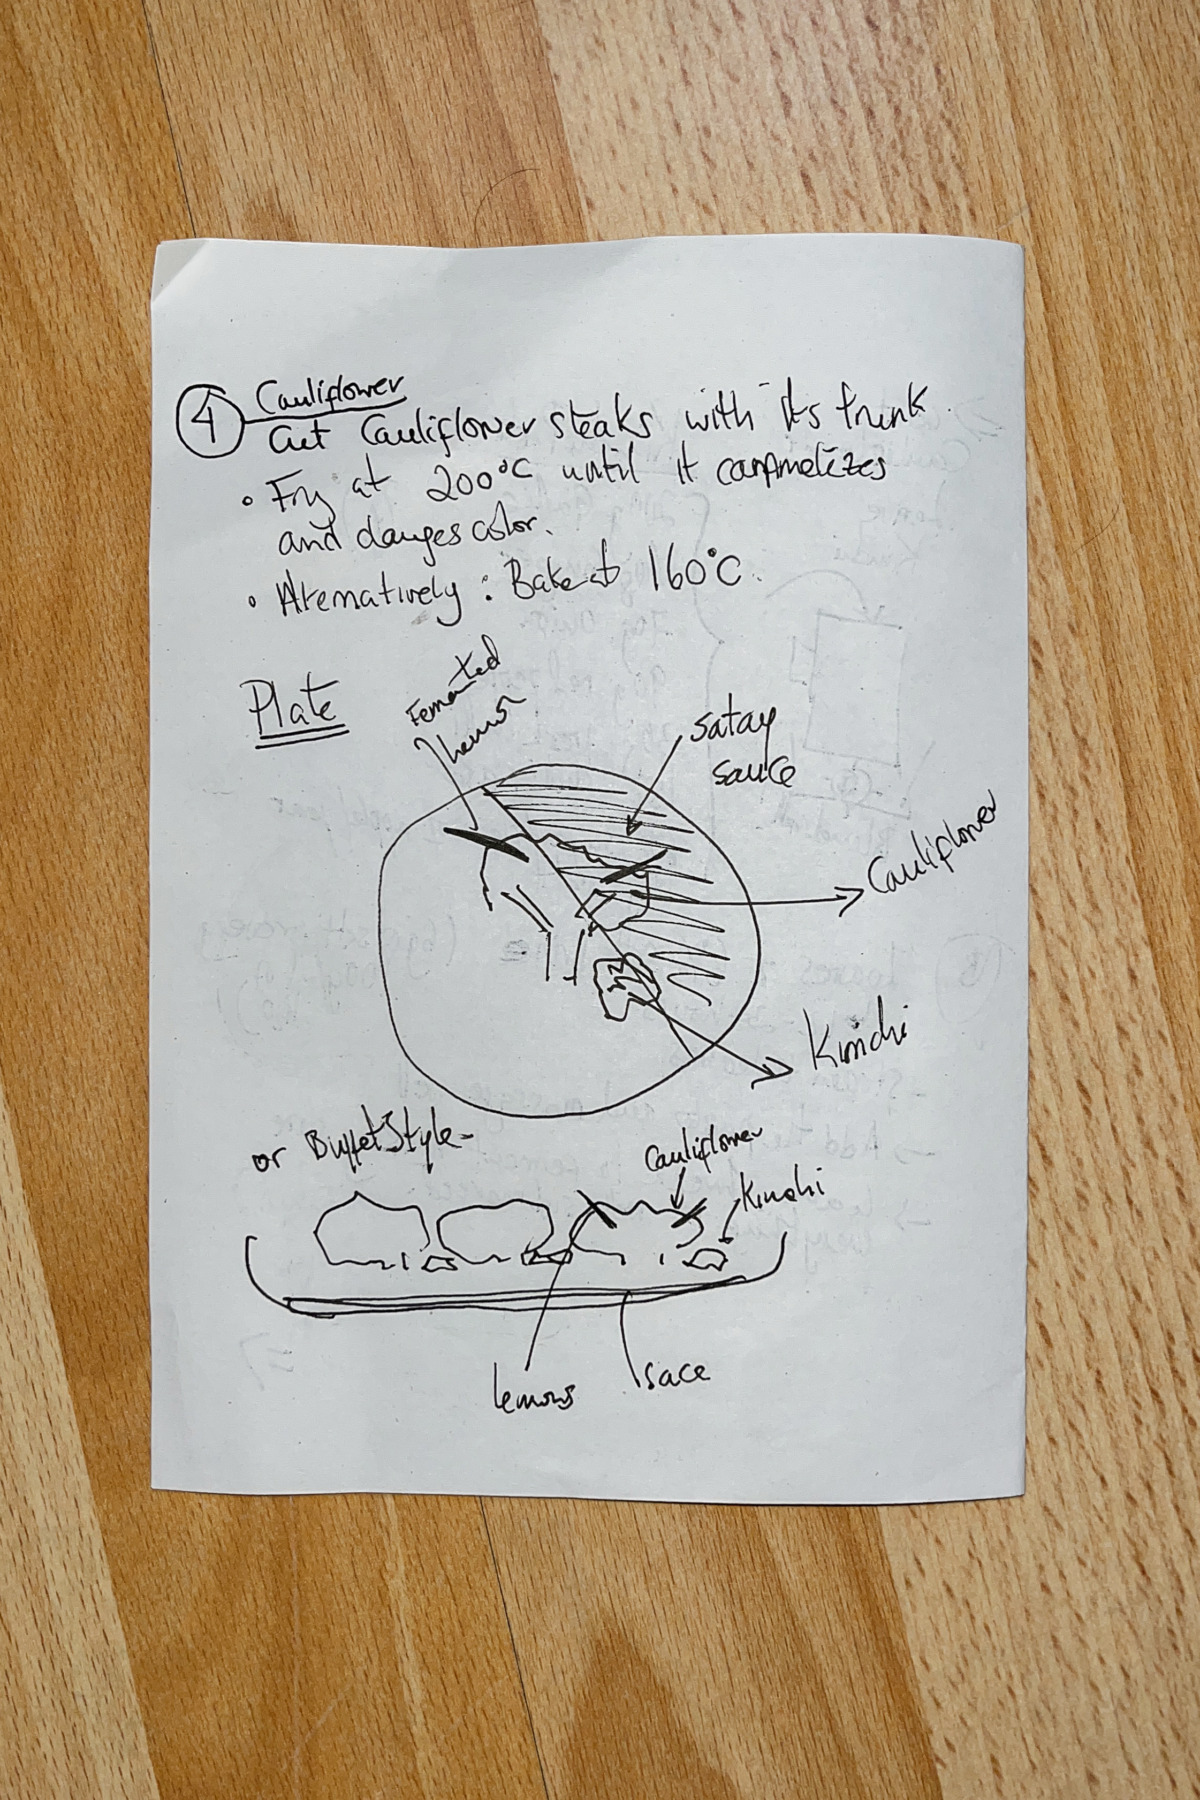 4 Cauliflower
Cut Cauliflower steaks with its trunk.
• Fry at 200°C until it carmelizes
and changes color.
• Alternatively: Bake at 160°C.
Plate
Fermented
lemon
satay
sauce
Cauliflower
Kimchi
or Buffet Style-
Cauliflower
Kimchi
lemons
sace